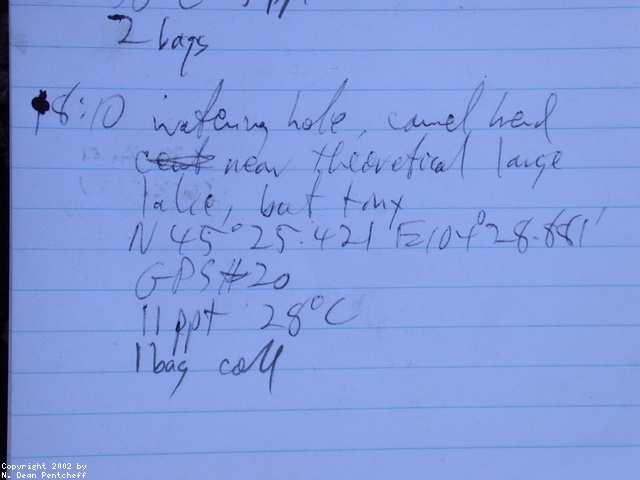 2 bags
18:10 watering hole, camel herd
near theoretical large
lake, but tiny
N 45° 25.421 E104° 28.881'
GPS #20
11 ppt 28°C
1 bag coll
Copyright 2002 by
N. Dean Pentcheff